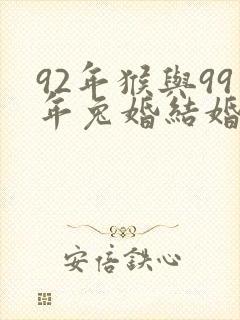 92年猴與99
年兔婚結婚
安倍鉄心